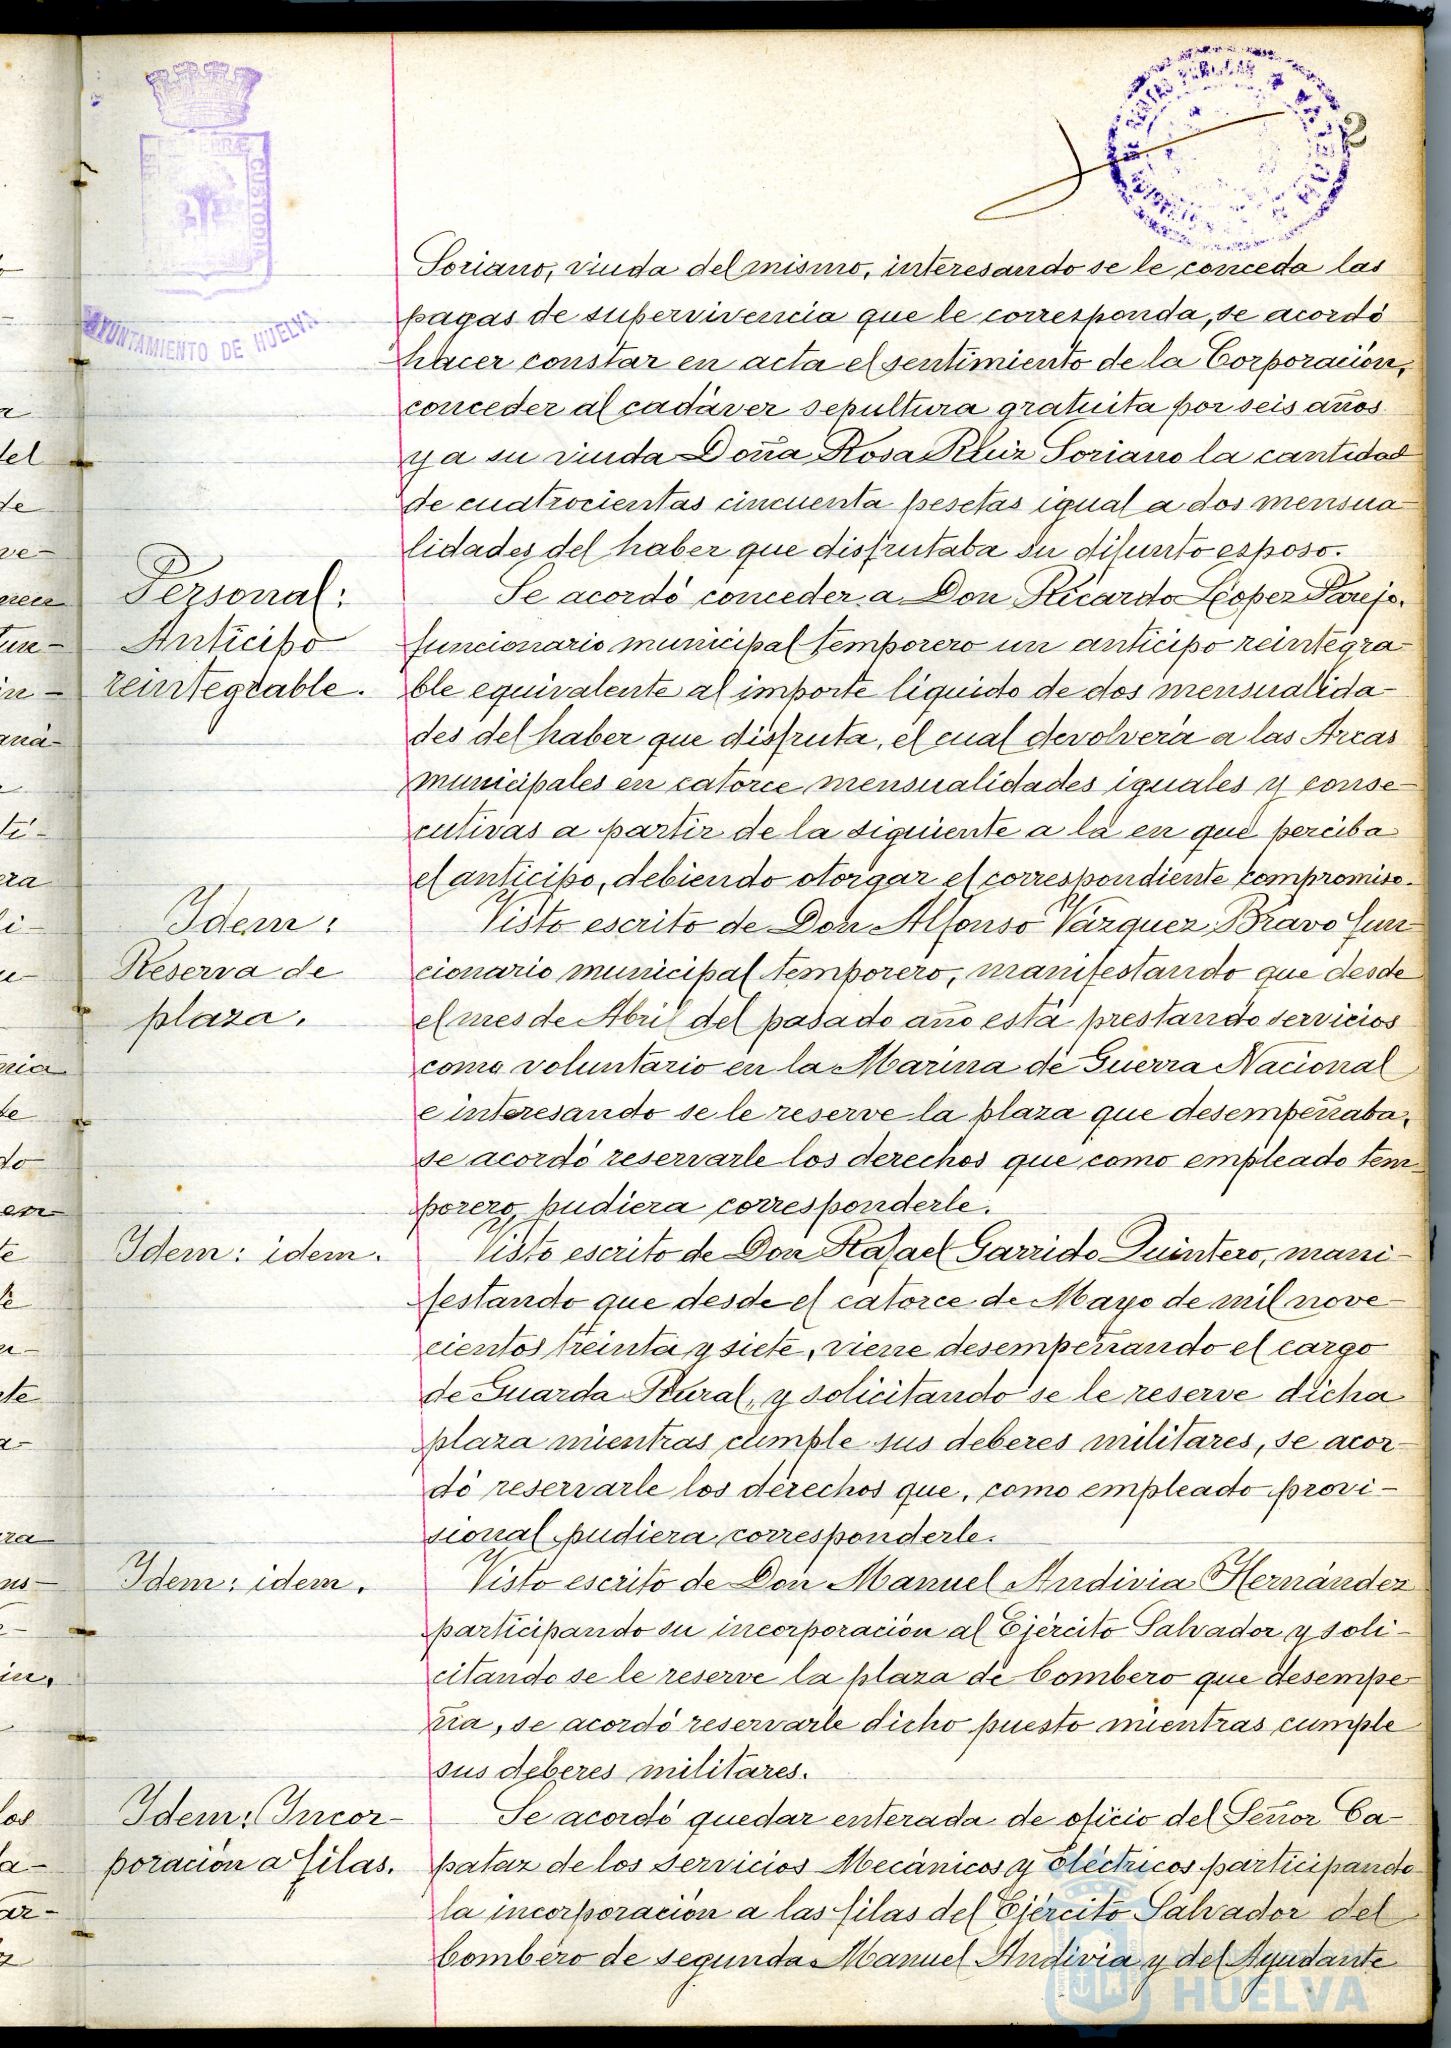 2
PORTUS MARIS ET TERRÆ CUSTODIA
AYUNTAMIENTO DE HUELVA
Soriano, viuda del mismo, interesando se le conceda las
pagas de supervivencia que le corresponda, se acordó
hacer constar en acta el sentimiento de la Corporación,
conceder al cadáver sepultura gratuita por seis años
y a su viuda Doña Rosa Ruiz Soriano la cantidad
de cuatrocientas cincuenta pesetas igual a dos mensua-
lidades del haber que disfrutaba su difunto esposo.
Personal:
Anticipo
reintegrable.
Se acordó conceder a Don Ricardo López Parejo,
funcionario municipal temporero un anticipo reintegra-
ble equivalente al importe líquido de dos mensualida-
des del haber que disfruta, el cual devolverá a las Arcas
municipales en catorce mensualidades iguales y conse-
cutivas a partir de la siguiente a la en que perciba
el anticipo, debiendo otorgar el correspondiente compromiso.
Idem:
Reserva de
plaza.
Visto escrito de Don Alfonso Vázquez Bravo fun-
cionario municipal temporero, manifestando que desde
el mes de Abril del pasado año está prestando servicios
como voluntario en la Marina de Guerra Nacional
e interesando se le reserve la plaza que desempeñaba,
se acordó reservarle los derechos que como empleado tem-
porero pudiera corresponderle.
Idem: idem.
Visto escrito de Don Rafael Garrido Quintero, mani-
festando que desde el catorce de Mayo de mil nove-
cientos treinta y siete, viene desempeñando el cargo
de Guarda Rural, y solicitando se le reserve dicha
plaza mientras cumple sus deberes militares, se acor-
dó reservarle los derechos que, como empleado provi-
sional pudiera corresponderle.
Idem: idem.
Visto escrito de Don Manuel Andivia Hernández
participando su incorporación al Ejército Salvador y soli-
citando se le reserve la plaza de bombero que desempe-
ña, se acordó reservarle dicho puesto mientras cumple
sus deberes militares.
Idem: Incor-
poración a filas.
Se acordó quedar enterada de oficio del Señor Ca-
pataz de los servicios Mecánicos y Eléctricos participando
la incorporación a las filas del Ejército Salvador del
bombero de segunda Manuel Andivia y del Ayudante
HUELVA